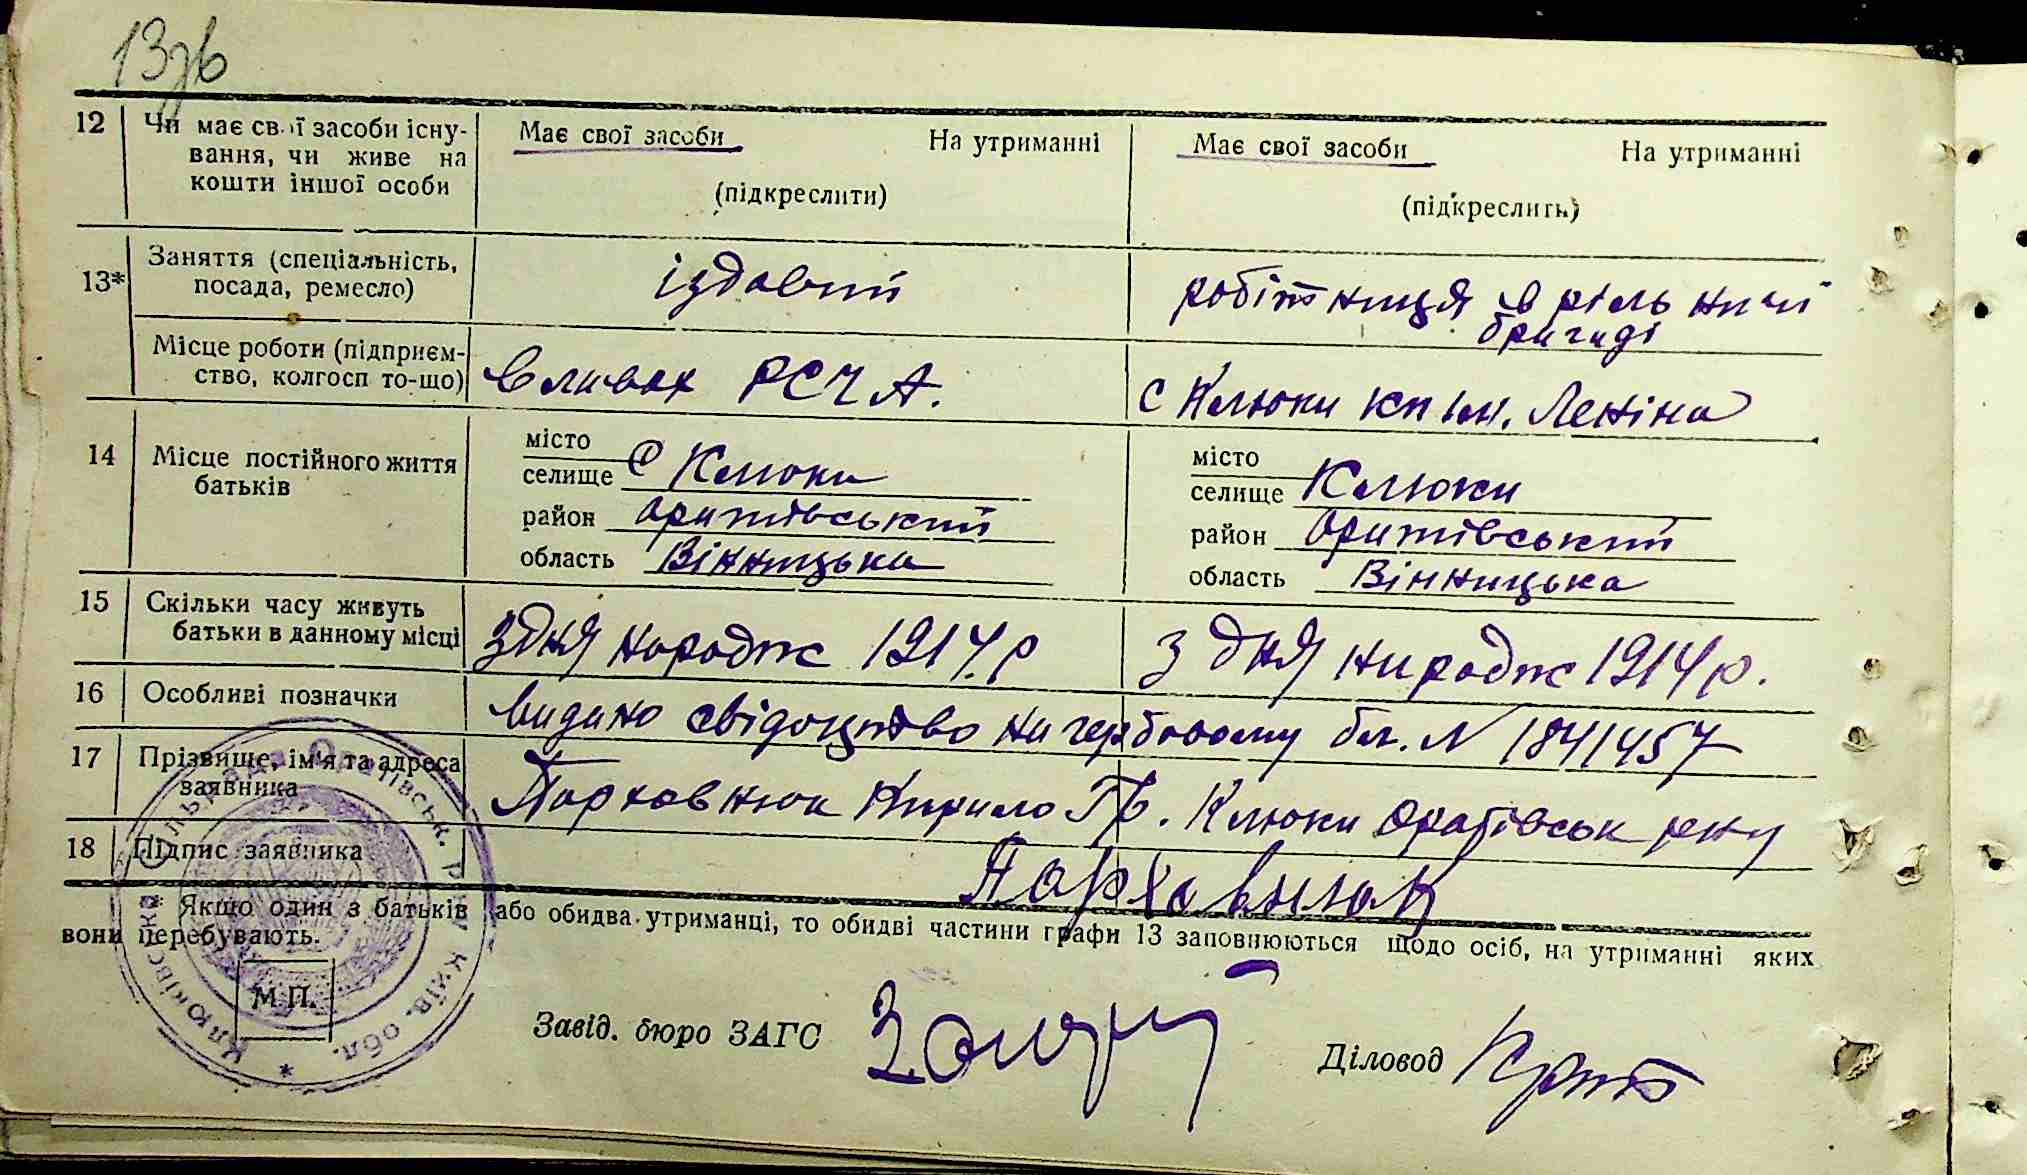 13зв
12 Чи має свої засоби існу- Має свої засоби На утриманні Має свої засоби На утриманні
вання, чи живе на
кошти іншої особи (підкреслити) (підкреслить)
13* Заняття (спеціальність, їздовий робітниця в рільничі
посада, ремесло) бригаді
Місце роботи (підприєм- в лавах РСЧА. с Клюки кп ім. Леніна
ство, колгосп то-що)
14 Місце постійного життя місто місто
батьків селище с Клюки селище Клюки
район оратівський район оратівський
область Вінницька область Вінницька
15 Скільки часу живуть з дня народж 1914.р з дня народж 1914р.
батьки в данному місці
16 Особливі позначки видано свідоцтво на гербовому бл. N 1841457
17 Прізвище, ім'я та адреса Пархавнюк Кирило Гр. Клюки оратівськ рну
заявника
18 Підпис заявника Пархавнюк
Якщо один з батьків або обидва утриманці, то обидві частини графи 13 заповнюються щодо осіб, на утриманні яких
вони перебувають.
М.П.
Завід. бюро ЗАГС Діловод
Клюківська Сільрада Оратівськ. Р-ну Київ. обл.